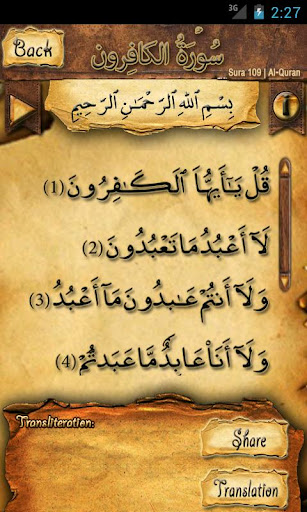 3G 2:27
Back
سُورَةُ الكَافِرُون
Sura 109 | Al-Quran
بِسْمِ ٱللَّهِ ٱلرَّحْمَٰنِ ٱلرَّحِيمِ
قُلْ يَٰٓأَيُّهَا ٱلْكَٰفِرُونَ (1)
لَآ أَعْبُدُ مَا تَعْبُدُونَ (2)
وَلَآ أَنتُمْ عَٰبِدُونَ مَآ أَعْبُدُ (3)
وَلَآ أَنَا۠ عَابِدٌ مَّا عَبَدتُّمْ (4)
Transliteration:
Share
Translation